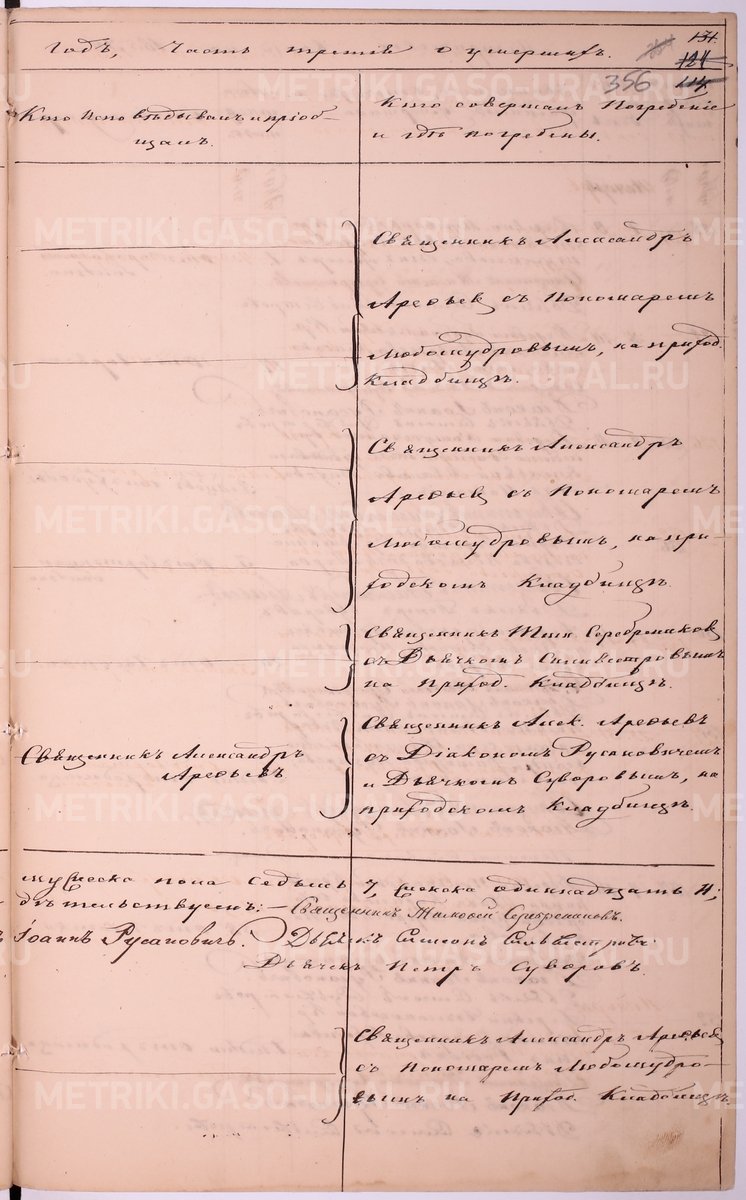 131
121
114
356
Годъ, Часть третiя о умершихъ.
Кто исповѣдывалъ и прiоб-
щалъ.
Кто совершалъ погребенiе
и гдѣ погребены.
Священникъ Александръ
Арефьев съ Пономаремъ
Любомудровымъ, на приход.
Кладбищѣ.
Священникъ Александръ
Арефьев съ Пономаремъ
Любомудровымъ, на при-
ходскомъ Кладбищѣ.
Священникъ Тим. Серебреников
съ Дьячкомъ Силивестровымъ
на Приход. Кладбищѣ.
Священникъ Александръ
Арефьевъ
Священникъ Алек. Арефьевъ
съ Дiакономъ Русановичемъ
и Дьячкомъ Суворовымъ, на
приходскомъ Кладбищѣ.
мужеска пола седьмь 7, женска одиннадцать 11;
дѣтельствуемъ: – Священникъ Тимофей Серебрениковъ.
Iоаннъ Русановичъ. Дьячекъ Симеонъ Сильвестровъ
Дьячекъ Петръ Суворовъ.
Священникъ Александръ Арефьев
съ Пономаремъ Любомудро-
вымъ на Приход. Кладбищѣ.
METRIKI.GASO-URAL.RU